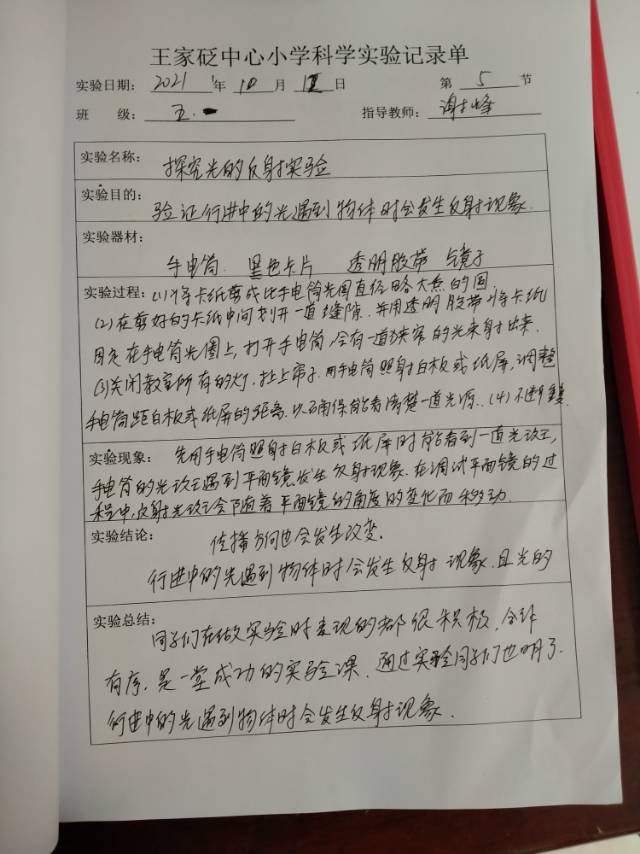 王家砭中心小学科学实验记录单
实验日期: 2021 年 10 月 12 日 第 5 节
班 级: 五.一 指导教师: 谢峰
实验名称: 探究光的反射实验
实验目的: 验证行进中的光遇到物体时会发生反射现象
实验器材:
手电筒 黑色卡片 透明胶带 镜子
实验过程: (1)将卡纸剪成比手电筒光圈直径略大点的圆
(2)在剪好的卡纸中间划开一道缝隙.并用透明胶带将卡纸
固定在手电筒光圈上,打开手电筒,会有一道狭窄的光束射出来.
(3)关闭教室所有的灯.拉上帘子.用手电筒照射白板或纸屏,调整
手电筒距白板或纸屏的距离.以确保能看清楚一道光源.(4)不断重复
实验现象: 先用手电筒照射白板或纸屏时能看到一道光斑,
手电筒的光斑遇到平面镜发生反射现象.在调试平面镜的过
程中,反射光斑会随着平面镜的角度的变化而移动.
实验结论: 传播方向也会发生改变.
行进中的光遇到物体时会发生反射现象.且光的
实验总结:
同学们在做实验时表现的都很积极,合作
有序.是一堂成功的实验课.通过实验同学们也明了
行进中的光遇到物体时会发生反射现象.